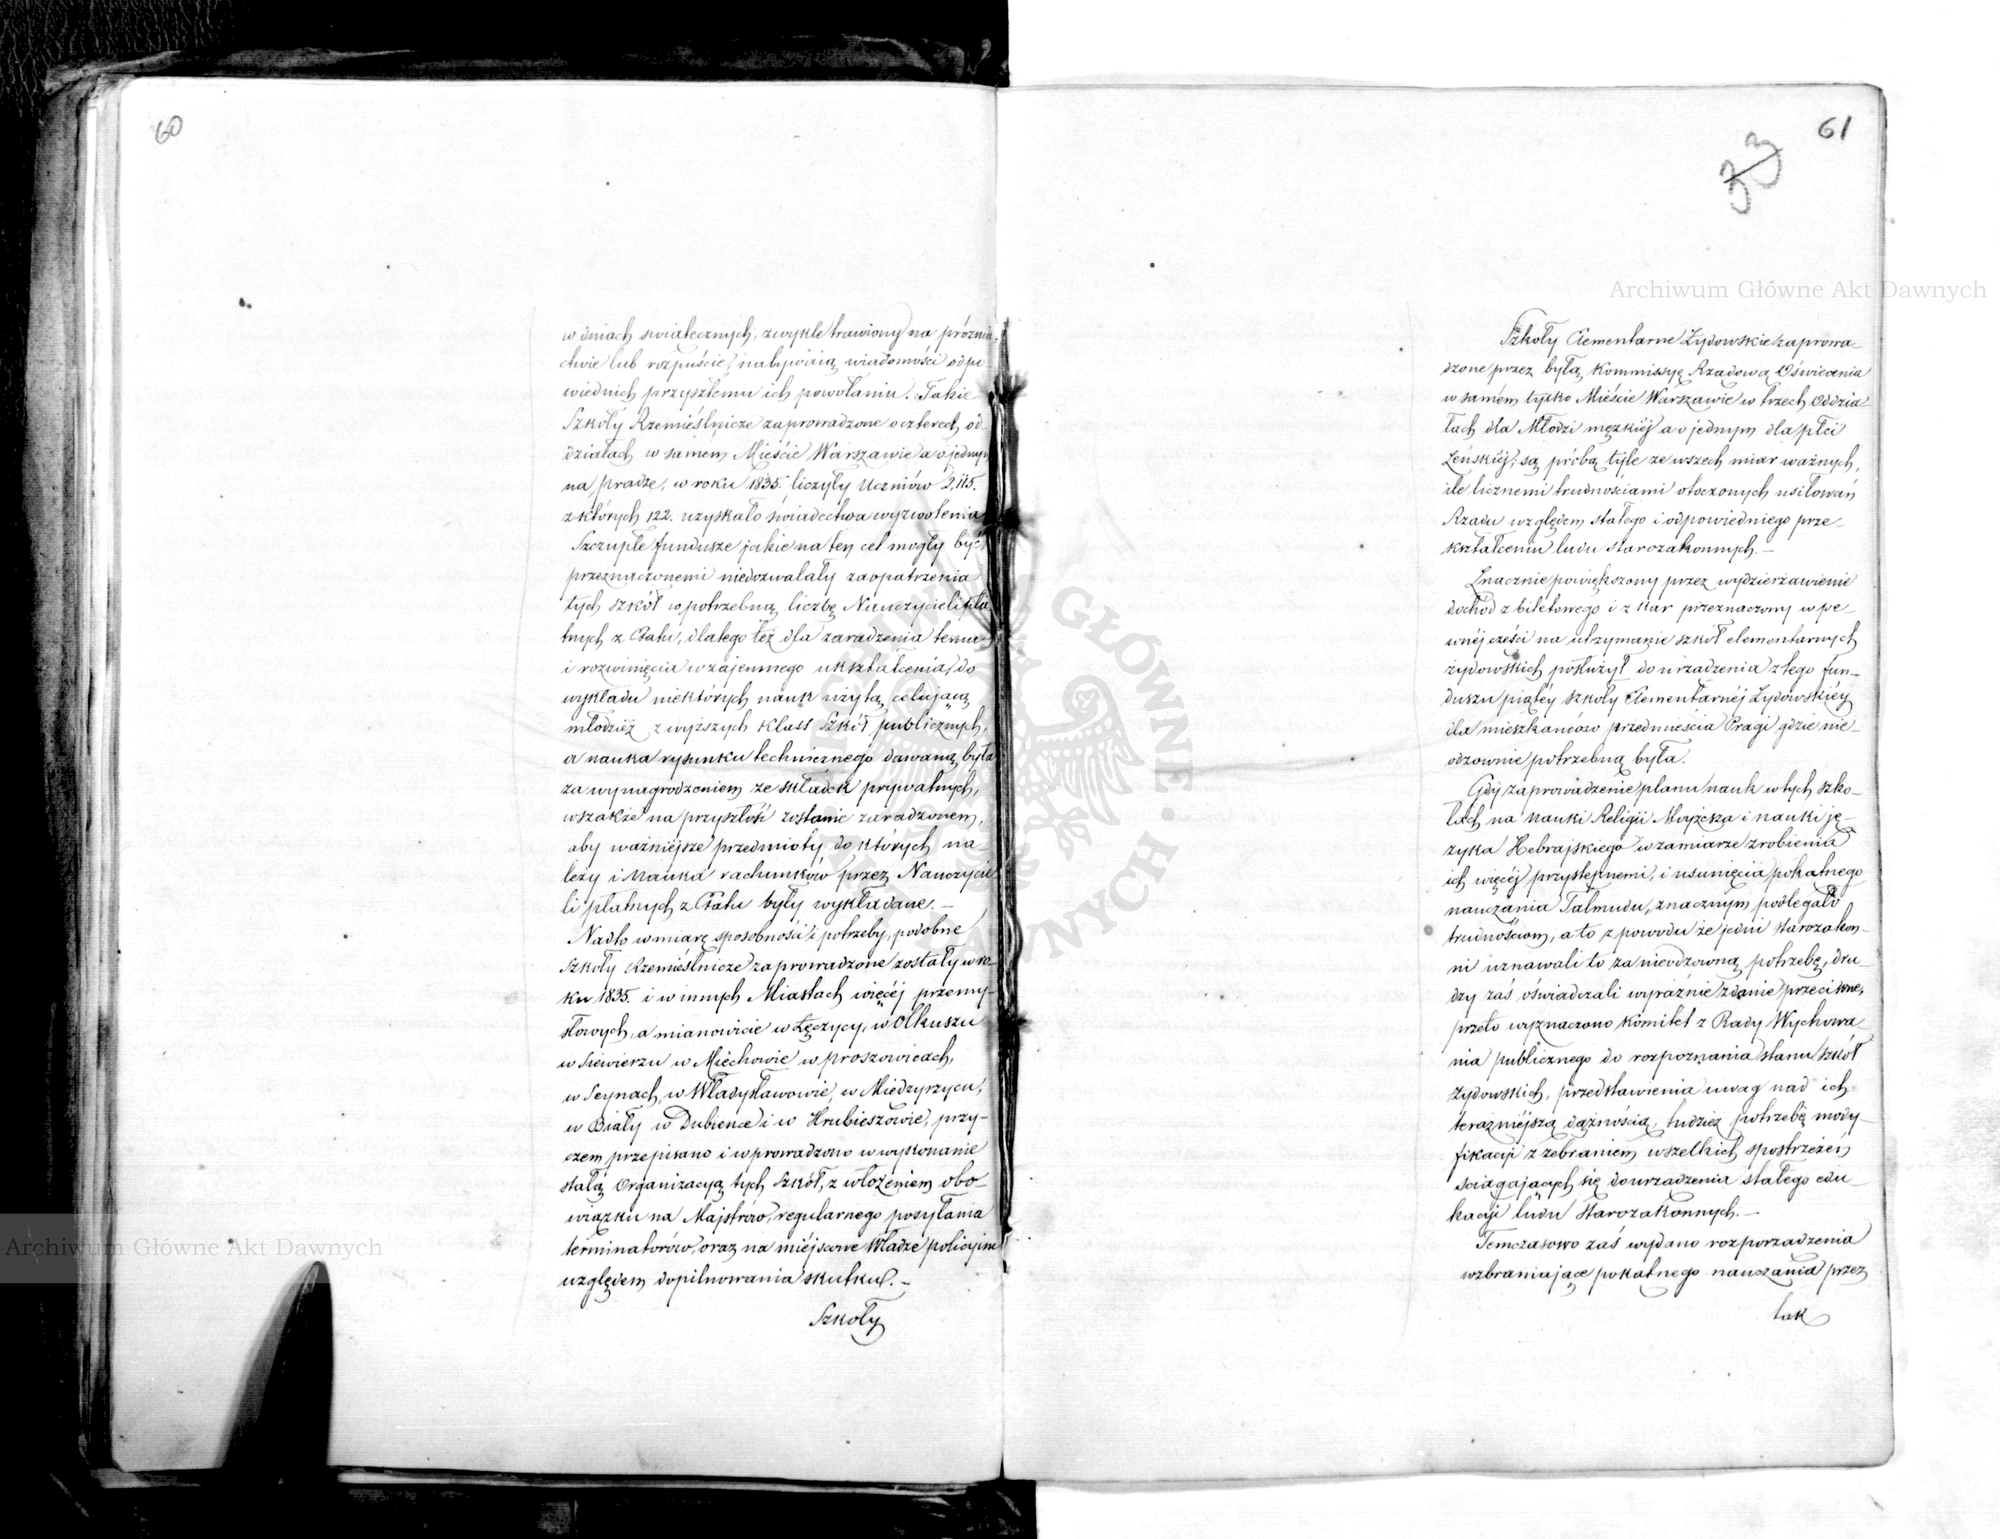 60
w dniach swiątecznych, zwykle trawiony na próznia-
ctwie lub rozpuście, nabywają wiadomości odpo
wiednich przyszłemu ich powołaniu. Takie
Szkoły Rzemieślnicze zaprowadzone o czterech od-
działach w samem Mieście Warszawie a o jednym
na pradze, w roku 1835. liczyły Uczniów 2,115.
z których 122. uzyskało świadectwa wyzwolenia
Szczupłe fundusze jakie na ten cel mogły być
przeznaczonemi niedozwalały zaopatrzenia
tych szkół w potrzebną liczbę Nauczycieli pła
tnych z Etatu, dlatego też dla zaradzenia temu
i rozwinięcia wzajemnego ukształcenia, do
wykładu niektórych nauk użytą celującą
młodzież z wyższych Klass Szkół publicznych,
a nauka rysunku technicznego dawaną była
za wynagrodzeniem ze składek prywatnych,
wszakże na przyszłość zostanie zaradzonem,
aby ważniejsze przedmioty do których na
leży i Nauka rachunków przez Nauczycie
li płatnych z Etatu były wykładane. –
Nadto w miarę sposobności i potrzeby, podobne
Szkoły Rzemieślnicze zaprowadzone zostały w ro
ku 1835. i w innych Miastach więcéj przemy-
słowych, a mianowicie w Łęczycy, w Olkuszu
w Siewierzu w Miechowie w proszowicach,
w Seynach, w Władysławowie, w Miedzyrzycu,
w Biały w Dubience i w Hrubieszowie, przy-
czem przepisano i wprowadzono w wykonanie
stałą Organizacyą tych Szkół, z włożeniem obo-
wiązku na Majstrów, regularnego posyłania
terminatorów, oraz na miéjscowe Władze policyjne
względem dopilnowania skutku. –
Szkoły
61
33
Szkoły Elementarne Żydowskie zaprowa-
dzone przez byłą Kommissyę Rządową Oświecenia
w samém tylko Mieście Warszawie w trzech Oddzia-
łach dla Młodzi męzkiéj a o jednym dla płci
Żeńskiéj; są próbą tyle ze wszech miar ważnych,
ile licznemi trudnościami otoczonych usiłowań
Rządu względem stałego i odpowiedniego prze-
kształceniu ludu starozakonnych. –
Znacznie powiększony przez wydzierżawienie
dochód z biletowego i z kar przeznaczony w pe-
wnéj cześci na utrzymanie szkół elementarnych
żydowskich posłużył do urządzenia z tego fun-
duszu piątéy szkoły Elementarnéj Żydowskiéy
dla mieszkańców przedmieścia Pragi gdzie nie-
odzownie potrzebną była.
Gdy zaprowadzenie planu nauk w tych szko-
łach na nauki Religii Mojżesza i nauki ję-
zyka Hebrajskiego w zamiarze zrobienia
ich więcéj przystępnemi, i usunięcia pokątnego
nauczania Talmudu, znacznym podlegało
trudnościom, a to z powodu że jedni starozakon-
ni uznawali to za nieodzowną potrzebę, dru-
dzy zaś oświadczali wyraźnie zdanie przeciwne,
przeto wyznaczono Komitet z Rady Wychowa-
nia publicznego do rozpoznania stanu szkół
żydowskich, przedstawienia uwag nad ich
teraźniéjszą dążnością, tudzież potrzebę mody-
fikacyi z zebraniem wszelkich spostrzeżeń
sciągających się do urządzenia stałego edu-
kacyi ludu starozakonnych. –
Temczasowo zaś wydano rozporządzenia
wzbraniające pokątnego nauczania przez
tak
Archiwum Główne Akt Dawnych
Archiwum Główne Akt Dawnych